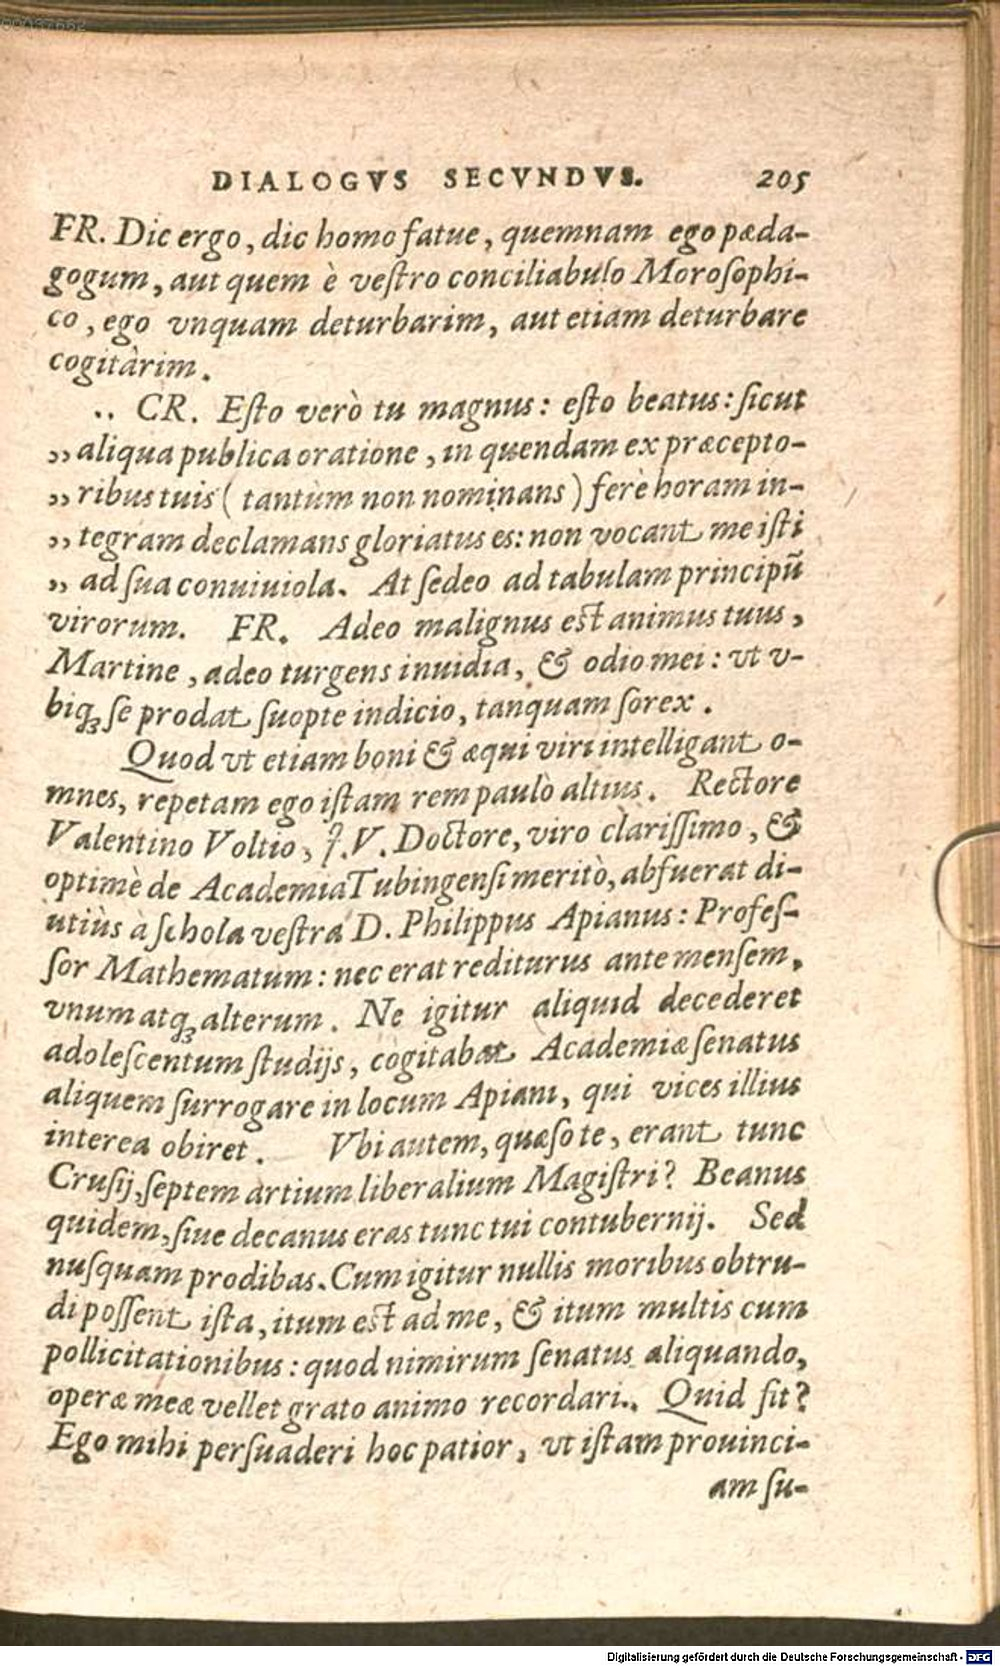 00037662
DIALOGVS SECVNDVS. 205
FR. Dic ergo, dic homo fatue, quemnam ego pæda-
gogum, aut quem è veſtro conciliabulo Moroſophi-
co, ego vnquam deturbarim, aut etiam deturbare
cogitàrim.
,, CR. Eſto verò tu magnus: eſto beatus: ſicut
,, aliqua publica oratione, in quendam ex præcepto-
,, ribus tuis (tantùm non nominans) ferè horam in-
,, tegram declamans gloriatus es: non vocant me iſti
,, ad ſua conuiuiola. At ſedeo ad tabulam principũ
virorum. FR. Adeo malignus eſt animus tuus,
Martine, adeo turgens inuidia, & odio mei: vt v-
biqꝫ ſe prodat ſuopte indicio, tanquam ſorex.
Quod vt etiam boni & æqui viri intelligant o-
mnes, repetam ego iſtam rem paulò altius. Rectore
Valentino Voltio, J.V. Doctore, viro clariſſimo, &
optimè de Academia Tubingenſi meritò, abfuerat di-
utiùs à ſchola veſtra D. Philippus Apianus: Profeſ-
ſor Mathematum: nec erat rediturus ante menſem,
vnum atqꝫ alterum. Ne igitur aliquid decederet
adoleſcentum ſtudijs, cogitabat Academiæ ſenatus
aliquem ſurrogare in locum Apiani, qui vices illius
interea obiret. Vbi autem, quæſo te, erant tunc
Cruſij, ſeptem artium liberalium Magiſtri? Beanus
quidem, ſiue decanus eras tunc tui contubernij. Sed
nuſquam prodibas. Cum igitur nullis moribus obtru-
di poſſent iſta, itum eſt ad me, & itum multis cum
pollicitationibus: quod nimirum ſenatus aliquando,
operæ meæ vellet grato animo recordari. Quid fit?
Ego mihi perſuaderi hoc patior, vt iſtam prouinci-
am ſu-
Digitalisierung gefördert durch die Deutsche Forschungsgemeinschaft - DFG